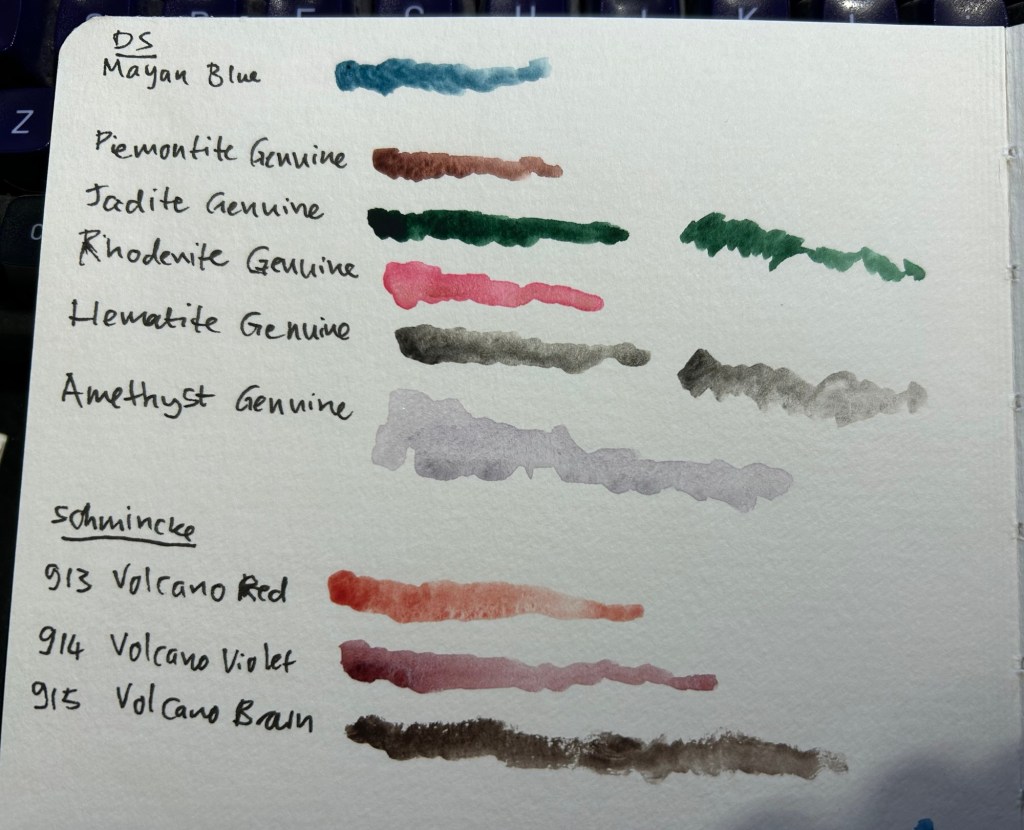 DS
Mayan Blue
Piemontite Genuine
Jadite Genuine
Rhodenite Genuine
Hematite Genuine
Amethyst Genuine
Schmincke
913 Volcano Red
914 Volcano Violet
915 Volcano Brown
Z